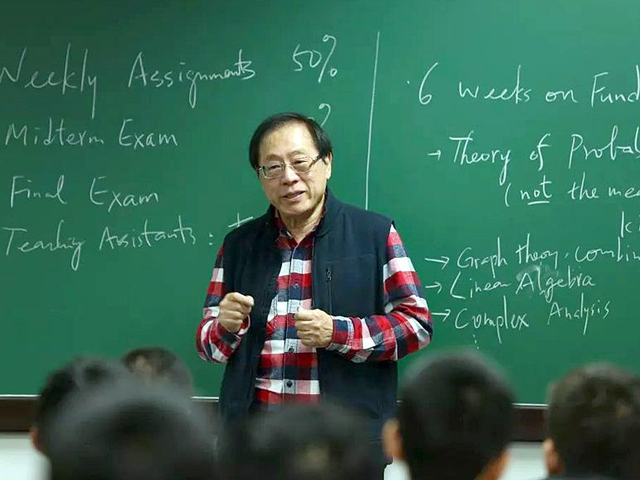 Weekly Assignments 50%
Midterm Exam ?
Final Exam
Teaching Assistants :
6 Weeks on Fund
→ Theory of Probab
(not the me
→ Graph theory, combin
→ Linear Algebra
→ Complex Analysis